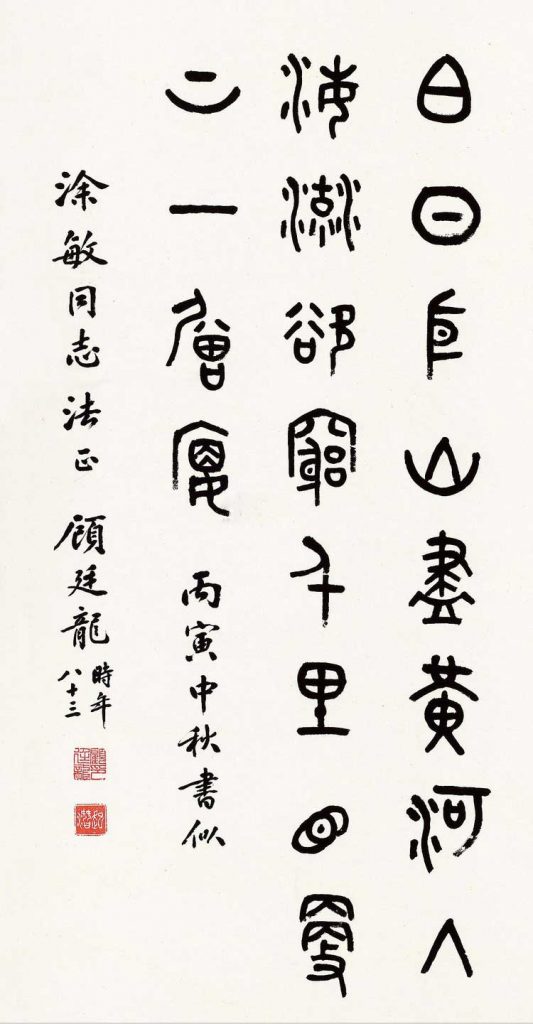 白日依山盡黃河入
海流欲窮千里目更
上一層樓 丙寅中秋書似
涂敏同志法正 顧廷龍 時年八十三
起潛